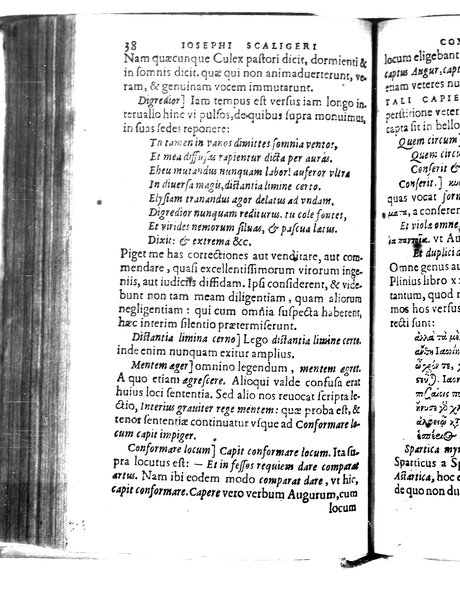 38 IOSEPHI SCALIGERI
Nam quæcunque Culex pastori dicit, dormienti &
in somnis dicit. quæ qui non animaduerterunt, ve-
ram, & genuinam vocem immutarunt.
Digredior] Iam tempus est versus iam longo in-
teruallo hinc vi pulsos, de quibus supra monuimus,
in suas sedes reponere:
Tu tamen in vanos dimittes somnia ventos,
Et mea diffusas rapientur dicta per auras.
Eheu mutandus nunquam labor! auferor vltra
In diuersa magis, distantia limine certo.
Elysiam tranandus agor delatus ad vndam.
Digredior nunquam rediturus. tu cole fontes,
Et virides nemorum siluas, & pascua latus.
Dixit: & extrema &c.
Piget me has correctiones aut venditare, aut com-
mendare, quasi excellentissimorum virorum inge-
niis, aut iudiciis diffidam. Ipsi considerent, & vide-
bunt non tam meam diligentiam, quam aliorum
negligentiam: qui cum omnia suspecta haberent,
hæc interim silentio prætermiserunt.
Distantia limina cerno] Lego distantia limine certo.
inde enim nunquam exitur amplius.
Mentem ager] omnino legendum, mentem agret.
A quo etiam agrescere. Alioqui valde confusa erat
huius loci sententia. Sed alio nos reuocat scripta le-
ctio, Interius grauiter rege mentem: quæ proba est, &
tenor sententiæ continuatur vsque ad Conformare lo-
cum capit impiger.
Conformare locum] Capit conformare locum. Ita su-
pra locutus est: — Et in fessos requiem dare comparat
artus. Nam ibi eodem modo comparat dare, vt hic,
capit conformare. Capere vero verbum Augurum, cum
locum
CO
locum eligebant
captus Augur, capt
etiam veteres nu
TALI CAPIE
perstitione veter
capta sit in bello
Quem circum]
Quem circu
Conserit.]
quas vocat for
a conserer
Et viola omne
vt Au
Et duplici d
Omne genus au
Plinius libro x
tantum, quod
mos, quatuor vers
recti sunt:
Spartica myr
Sparticus a Sp
Astartica, hoc e
de quo non du